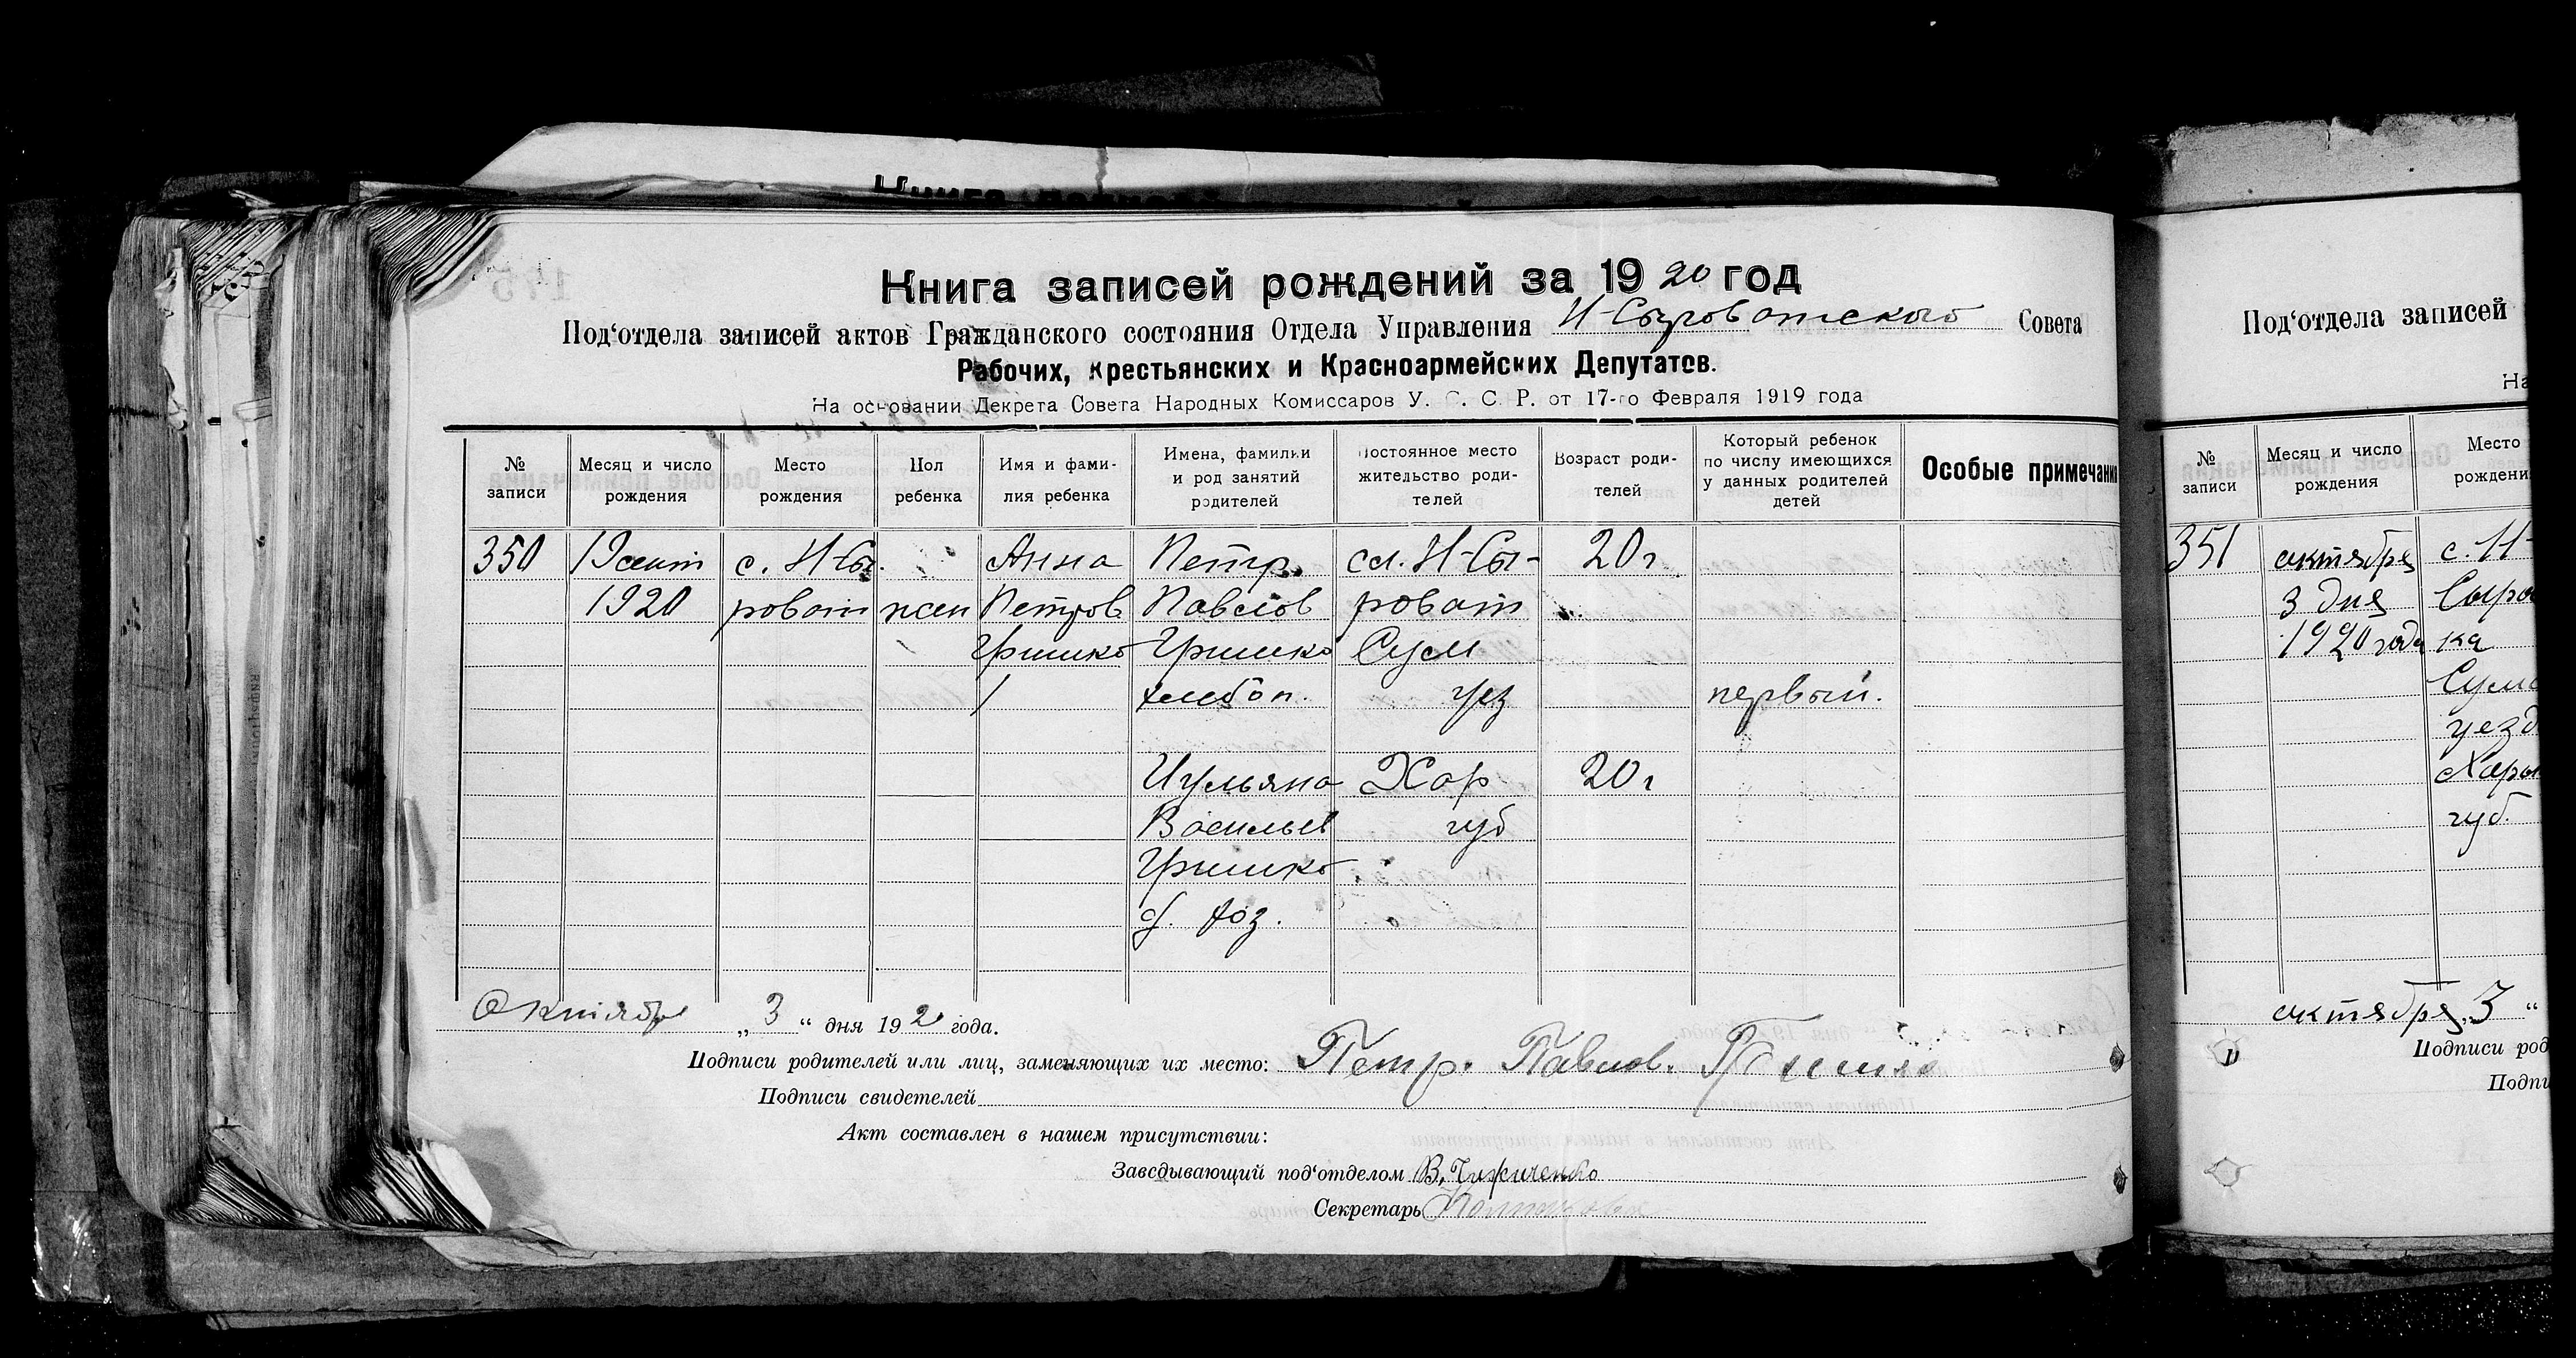 Книга записей рождений за 1920 год
Под‘отдела записей актов Гражданского состояния Отдела Управления Н-Сыроватского Совета
Рабочих, крестьянских и Красноармейских Депутатов.
На основании Декрета Совета Народных Комиссаров У. С. С. Р. от 17-го Февраля 1919 года
№ записи
Месяц и число рождения
Место рождения
Пол ребенка
Имя и фами-
лия ребенка
Имена, фамилии
и род занятий
родителей
Постоянное место
жительство роди-
телей
Возраст роди-
телей
Который ребенок
по числу имеющихся
у данных родителей
детей
Особые примечани
350
19 сент
1920
с. Н-Сы
роват
жен
Анна
Петров
Гришко
Петр
Павлов
Гришко
хлебоп.
Иульяна
Васильев
Гришко
д. хоз.
сл. Н-Сы-
роват
Сум
уез
Хар
губ
20 г
20 г
первый.
Октября „3“ дня 192 года.
Подписи родителей или лиц, заменяющих их место: Петр. Павлов. Гришко
Подписи свидетелей
Акт составлен в нашем присутствии:
Заведывающий под‘отделом
Секретарь
Под‘отдела записей
На
№ записи
Месяц и число
рождения
Место
рождени
351
октября
3 дня
1920 года
с. Н-
Сыро
ка
Сумс
уезд
Харь
губ.
октября „3“
Подписи род
Подпи